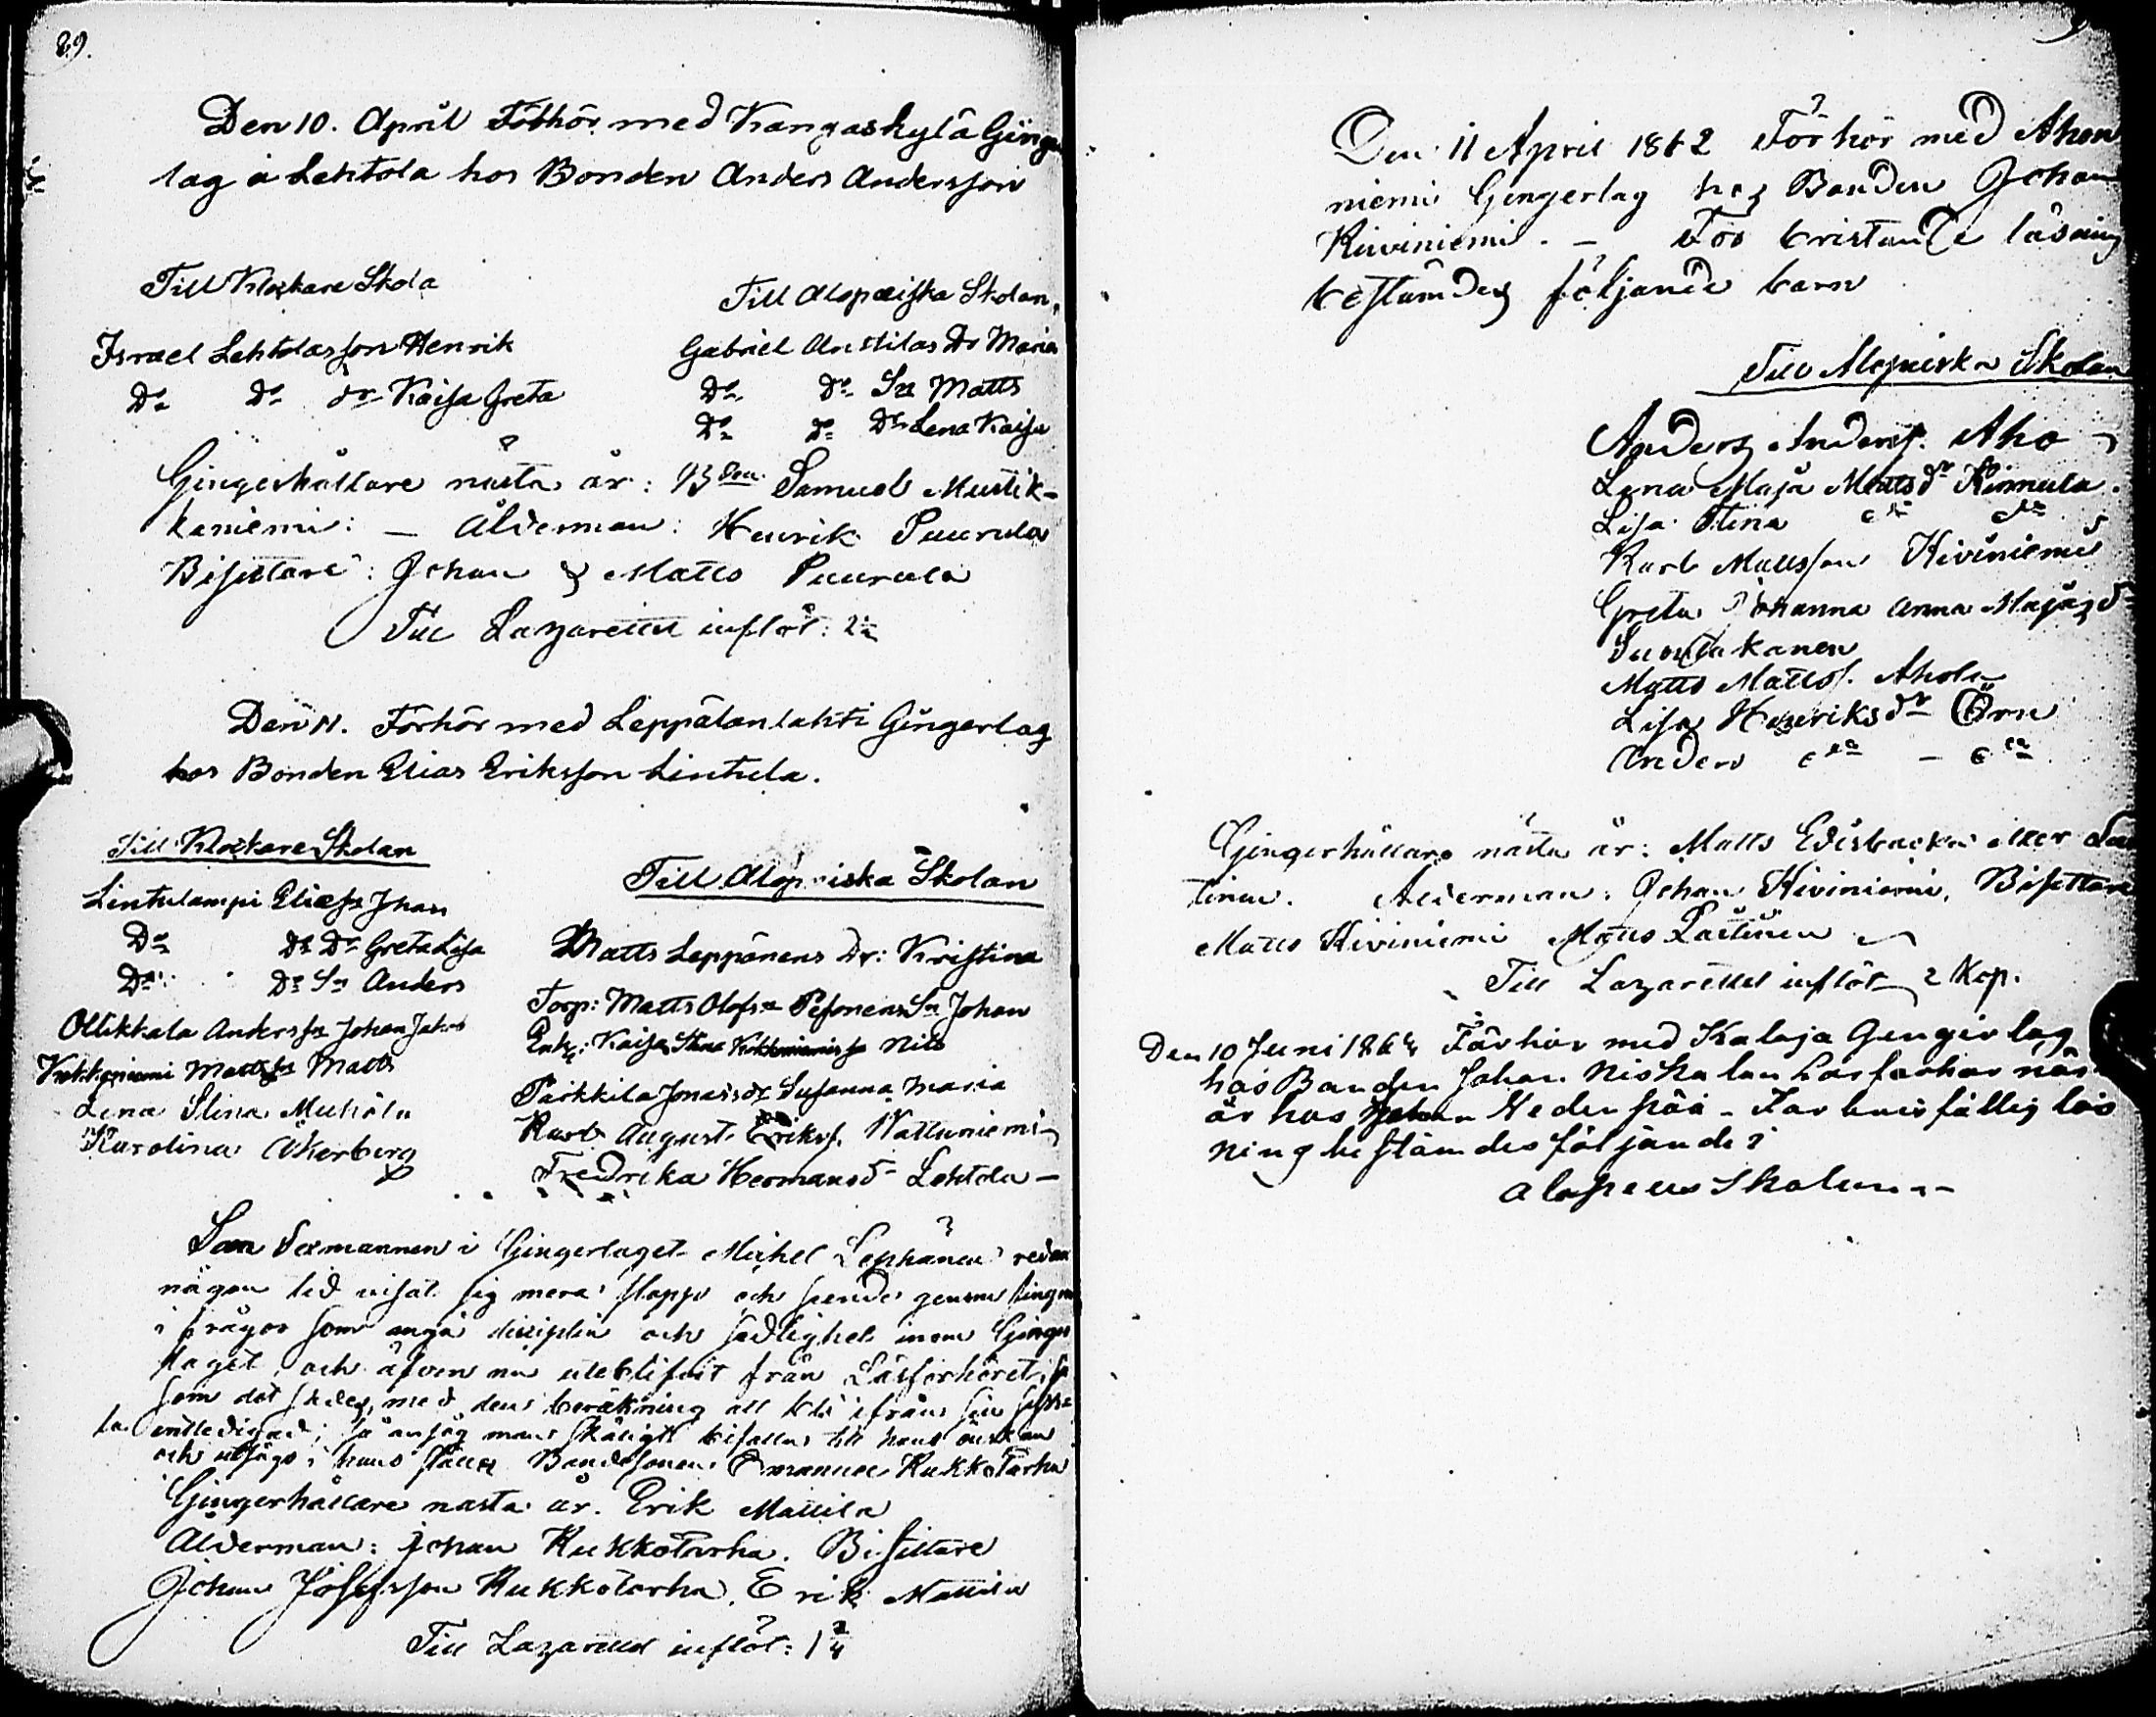 29.
Den 10. April Förhör med Kangaskylä Ginger
lag å Lehtola hos Bonden Anders Andersson
Till Klockare Skola
Israel Lehtolas son Henrik
Do Do dr Kaisa Greta
Till Alopæiska Skolan,
Gabriel Anttilas Dr Maria
Do Do Sn Matts
Do Do Dr Lena Kaisa
Gingerhållare nästa år: Bden Samuel Mustik-
kaniemi: — Ålderman: Henrik Puurula
Bisittare: Johan & Matts Puurula
Till Lazarettet inflöt: 2
Den 11. Förhör med Leppälänlahti Gingerlag
hos Bonden Elias Eriksson Lintula.
Till Klockare Skolan
Lintulampi Eliæ sn Johan
Do Do Dr Greta Lisa
Do Do Sn Anders
Ollikkala Anders sn Johan Jakob
Kokkoniemi Matts sn Matts
Lena Stina Mehälä
Karolina Åkerberg
Till Alopæiska Skolan
Matts Leppänens Dr: Kristina
Torp: Matts Olofsn Pesonens Sn Johan
Enk: Kaisa Stina Kokkoniemis sn Nils
Parkkila Jonas dr Susanna Maria
Karl August Eriks. Watluniemi
Fredrika Hermansd Lehtola —
Som Sexmannen i Gingerlaget Michel Leppänen redan
någon tid visat sig mera slapp och seende genom fingren
i frågor som angå disciplin och sedlighet inom Ginger
laget, och äfven nu uteblifvit från Läsförhöret, så
som det skedes, med den beräkning att bli ifrån sin syssla
entledigad; så ansåg man skäligt bifalla till hans önskan
och utsågs i hans ställe Bondesonen Emanuel Kukkotarha
Gingerhållare nästa år. Erik Mattila
Ålderman: Johan Kukkotarha. Bisittare
Johan Josefsson Kukkotarha, Erik Mattila
Till Lazarettet inflöt: 1 3/4
Den 11 April 1862 Förhör med Ahon
niemi Gingerlag hos Bonden Johan
Kiviniemi. — För bristande läsning
bestämdes följande barn
Till Alopæiska Skolan
Anders Anders. Aho
Lena Maja Mattsdr Kinnula.
Lisa Stina do do
Karl Mattsson Kiviniemi
Greta Johanna Anna Majas d
Suontakanen
Matts Matts. Ahola
Lisa Henriksdr Örn
Anders do — do
Gingerhållare nästa år: Matts Edisbacka eller
tinen. Ålderman: Johan Kiviniemi, Bisittare
Matts Kiviniemi Matts Lastinen
Till Lazarettet inflöt 2 Kop.
Den 10 Juni 1864 Förhör med Kalaja Gingerlag
hos Bonden Johan Niskala Läsförhör näs
år hos Johan Nederpää - För bristfällig läs
ning bestämdes följande i
Alopeus Skolan —